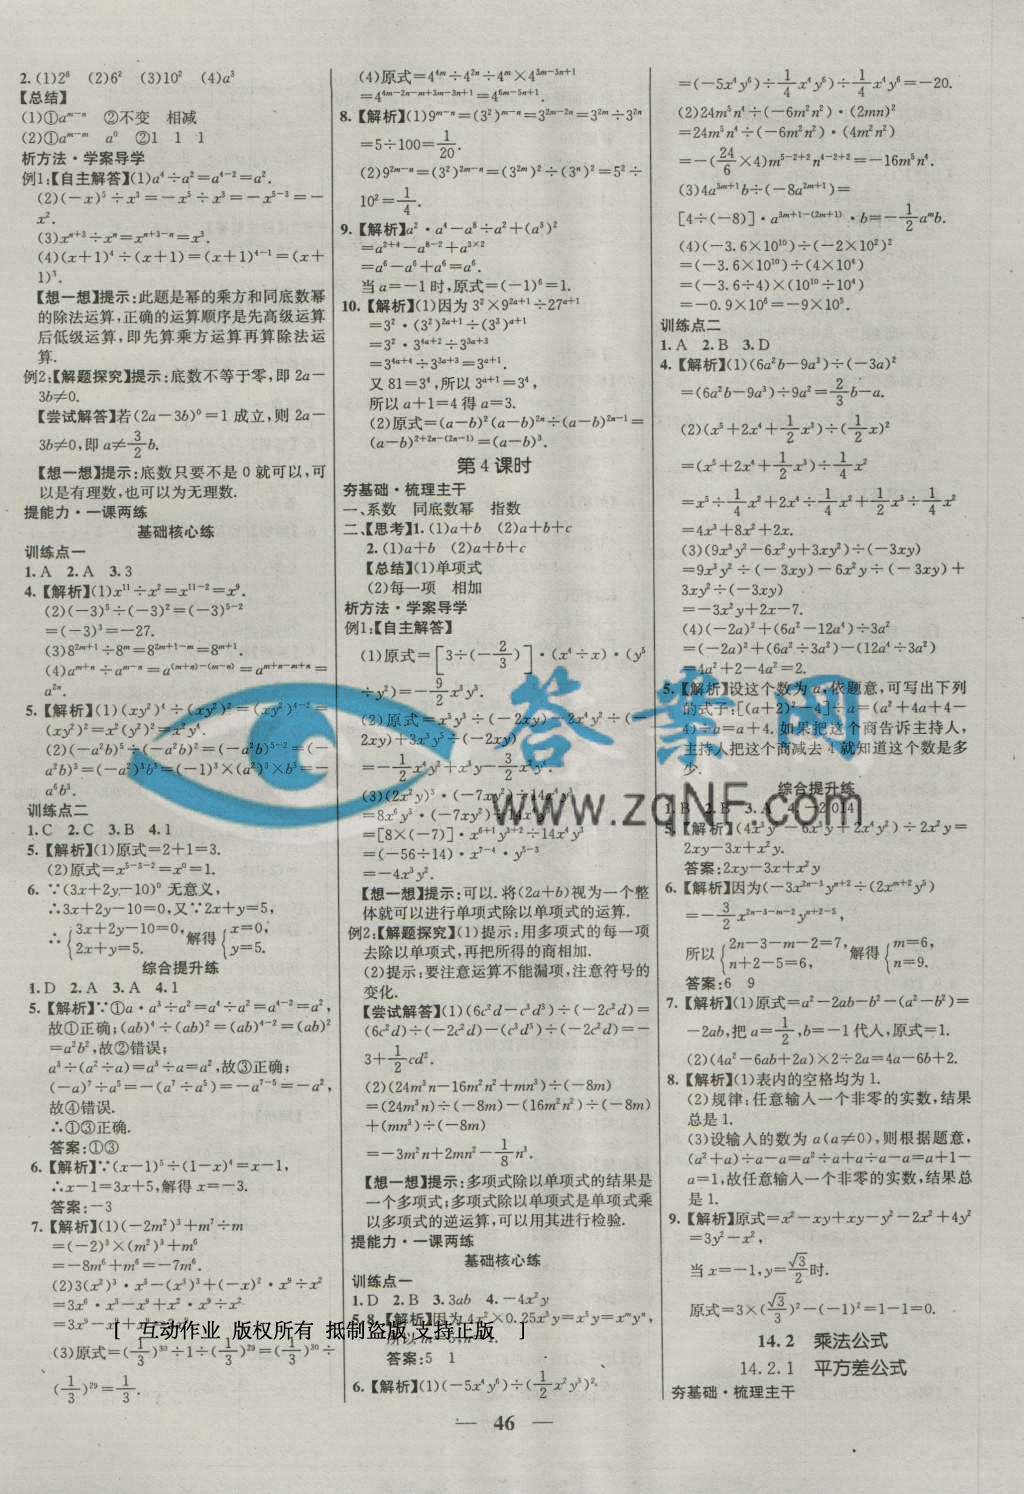 2.(1)2⁶ (2)6² (3)10² (4)a³
【总结】
(1)①aᵐ⁻ⁿ ②不变 相减
(2)①aᵐ⁻ᵐ a⁰ ②1 1 1
析方法·学案导学
例1:【自主解答】(1)a⁴÷a²=a⁴⁻²=a².
(2)(-x)⁵÷x³=-x⁵÷x³=-x⁵⁻³=-
x².
(3)xⁿ⁺³÷xⁿ=xⁿ⁺³⁻ⁿ=x³.
(4)(x+1)⁴÷(x+1)=(x+1)⁴⁻¹=(x+
1)³.
【想一想】提示:此题是幂的乘方和同底数幂
的除法运算,正确的运算顺序是先高级运算
后低级运算,即先算乘方运算再算除法运
算.
例2:【解题探究】提示:底数不等于零,即2a-
3b≠0.
【尝试解答】若(2a-3b)⁰=1成立,则2a-
3b≠0,即a≠3/2b.
【想一想】提示:底数只要不是0就可以,可
以是有理数,也可以为无理数.
提能力·一课两练
基础核心练
训练点一
1.A 2.A 3.3
4.【解析】(1)x¹¹÷x²=x¹¹⁻²=x⁹.
(2)(-3)⁵÷(-3)²=(-3)⁵⁻²
=(-3)³=-27.
(3)8²ᵐ⁺¹÷8ᵐ=8²ᵐ⁺¹⁻ᵐ=8ᵐ⁺¹.
(4)aᵐ⁺ⁿ÷aᵐ⁻ⁿ=a⁽ᵐ⁺ⁿ⁾⁻⁽ᵐ⁻ⁿ⁾=aᵐ⁺ⁿ⁻ᵐ⁺ⁿ=
a²ⁿ.
5.【解析】(1)(xy²)⁴÷(xy²)²=(xy²)⁴⁻²=
(xy²)²=x²(y²)²=x²y⁴.
(2)(-a²b)⁵÷(-a²b)²=(-a²b)⁵⁻²=(-
a²b)³=(-a²)³b³=(-1)³×(a²)³×b³=-
a⁶b³.
训练点二
1.C 2.C 3.B 4.1
5.【解析】(1)原式=2+1=3.
(2)原式=x⁵⁻³⁻²=x⁰=1.
6.∵(3x+2y-10)⁰无意义,
∴3x+2y-10=0,又∵2x+y=5,
∴{3x+2y-10=0, 2x+y=5. 解得{x=0, y=5.
综合提升练
1.D 2.A 3.A 4.1
5.【解析】∵①a·a³÷a²=a⁴÷a²=a⁴⁻²=a²,
故①正确;(ab)⁴÷(ab)²=(ab)⁴⁻²=(ab)²
=a²b²,故②错误;
a³÷(a²÷a)=a³÷a=a²,故③正确;
(-a)⁷÷a⁵=-(a⁷÷a⁵)=-a⁷⁻⁵=-a²,
故④错误.
∴①③正确.
答案:①③
6.【解析】∵(x-1)⁵÷(1-x)⁴=x-1,
∴x-1=3x+5,解得x=-3.
答案:-3
7.【解析】(1)(-2m²)³+m⁷÷m
=(-2)³×(m²)³+m⁶
=-8m⁶+m⁶=-7m⁶.
(2)3(x²)³·x³-(x³)³+(-x)²·x⁹÷x²
=3x⁶·x³-x⁹+x²·x⁹÷x²
=3x⁹-x⁹+x⁹=3x⁹.
[ 互动作业 版权所有 抵制盗版 支持正版 ]
(3)原式=(1/3)³⁰÷1÷(1/3)²⁹=(1/3)³⁰÷
(1/3)²⁹=1/3.
(4)原式=4⁴ᵐ÷4²ⁿ÷4ᵐ×4³ᵐ⁻³ⁿ⁺¹
=4⁴ᵐ⁻²ⁿ⁻ᵐ⁺³ᵐ⁻³ⁿ⁺¹=4⁶ᵐ⁻⁵ⁿ⁺¹.
8.【解析】(1)9ᵐ⁻ⁿ=(3²)ᵐ⁻ⁿ=3²ᵐ⁻²ⁿ=3²ᵐ÷3²ⁿ
=5÷100=1/20.
(2)9²ᵐ⁻ⁿ=(3²)²ᵐ⁻ⁿ=(3²ᵐ)²÷(3ⁿ)²=5²÷
10²=1/4.
9.【解析】a²·a⁴-a⁸÷a²+(a³)²
=a²⁺⁴-a⁸⁻²+a³ˣ²
=a⁶-a⁶+a⁶=a⁶.
当a=-1时,原式=(-1)⁶=1.
10.【解析】(1)因为3²×9²ᵃ⁺¹÷27ᵃ⁺¹
=3²·(3²)²ᵃ⁺¹÷(3³)ᵃ⁺¹
=3²·3⁴ᵃ⁺²÷3³ᵃ⁺³
=3⁴ᵃ⁺⁴÷3³ᵃ⁺³=3ᵃ⁺¹.
又81=3⁴,所以3ᵃ⁺¹=3⁴,
所以a+1=4得a=3.
(2)原式=(a-b)²(a-b)²ⁿ÷(a-b)²ⁿ⁻¹=
(a-b)²⁺²ⁿ⁻⁽²ⁿ⁻¹⁾=(a-b)³.
第4课时
夯基础·梳理主干
一、系数 同底数幂 指数
二、【思考】1.(1)a+b (2)a+b+c
2.(1)a+b (2)a+b+c
【总结】(1)单项式
(2)每一项 相加
析方法·学案导学
例1:【自主解答】
(1)原式=[3÷(-2/3)]·(x⁴÷x)·(y⁵
÷y²)=-9/2x³y³.
(2)原式=x⁵y³÷(-2xy)-2x⁴y²÷(-
2xy)+3x³y⁵÷(-2xy)
=-1/2x⁴y²+x³y-3/2x²y⁴.
(3)(2x²y)³·(-7xy²)÷14x⁴y³
=8x⁶y³·(-7xy²)÷14x⁴y³
=[8×(-7)]·x⁶⁺¹y³⁺²÷14x⁴y³
=(-56÷14)·x⁷⁻⁴·y⁵⁻³
=-4x³y².
【想一想】提示:可以.将(2a+b)视为一个整
体就可以进行单项式除以单项式的运算.
例2:【解题探究】(1)提示:用多项式的每一项
去除以单项式,再把所得的商相加.
(2)提示:要注意运算不能漏项,注意符号的
变化.
【尝试解答】(1)(6c²d-c³d³)÷(-2c²d)=
(6c²d)÷(-2c²d)-(c³d³)÷(-2c²d)=-
3+1/2cd².
(2)(24m³n-16m²n²+mn³)÷(-8m)
=(24m³n)÷(-8m)-(16m²n²)÷(-8m)
+(mn³)÷(-8m)
=-3m²n+2mn²-1/8n³.
【想一想】提示:多项式除以单项式的结果是
一个多项式;多项式除以单项式是单项式乘
以多项式的逆运算,可以用其进行检验.
提能力·一课两练
基础核心练
训练点一
1.D 2.B 3.3ab 4.-4x²y
5.【解析】因为4x²×0.25x³y=x⁵y=xᵐyⁿ,
所以m=5,n=1.
答案:5 1
6.【解析】(1)(-5x⁴y⁶)÷(1/2x²y³)²
=(-5x⁴y⁶)÷1/4x⁴y⁶÷1/4x⁴y⁶=-20.
(2)24m⁵n⁴÷(-6m²n²)·(2mn)²
=24m⁵n⁴÷(-6m²n²)·(4m²n²)
=-(24/6×4)m⁵⁻²⁺²n⁴⁻²⁺²=-16m⁵n⁴.
(3)4a³ᵐ⁺¹b÷(-8a²ᵐ⁺¹)=
[4÷(-8)]·a³ᵐ⁺¹⁻⁽²ᵐ⁺¹⁾·b=-1/2aᵐb.
(4)(-3.6×10¹⁰)÷(-2×10²)²
=(-3.6×10¹⁰)÷(4×10⁴)
=(-3.6÷4)×(10¹⁰÷10⁴)
=-0.9×10⁶=-9×10⁵.
训练点二
1.A 2.B 3.D
4.【解析】(1)(6a²b-9a³)÷(-3a)²
=(6a²b-9a³)÷9a²=2/3b-a.
(2)(x⁵+2x⁴+1/2x³)÷(1/2x)²
=(x⁵+2x⁴+1/2x³)÷1/4x²
=x⁵÷1/4x²+2x⁴÷1/4x²+1/2x³÷1/4x²
=4x³+8x²+2x.
(3)(9x³y²-6x²y+3xy²)÷(-3xy)
=9x³y²÷(-3xy)-6x²y÷(-3xy)+
3xy²÷(-3xy)
=-3x²y+2x-7.
(4)(-2a)²+(6a²-12a⁴)÷3a²
=(-2a)²+(6a²÷3a²)-(12a⁴÷3a²)
=4a²+2-4a²=2.
5.【解析】设这个数为a,依题意,可写出下列
的式子:[(a+2)²-4]÷a=(a²+4a+4-
4)÷a=a+4.如果把这个商告诉主持人,
主持人把这个商减去4就知道这个数是多
少.
综合提升练
1.B 2.B 3.A 4.-2 014
5.【解析】(4x³y²-6x³y+2x⁴y²)÷2x²y=
2xy-3x+x²y.
答案:2xy-3x+x²y
6.【解析】因为(-3x²ⁿ⁻³yⁿ⁺²÷(2xᵐ⁺²y⁵)
=-3/2x²ⁿ⁻³⁻ᵐ⁻²yⁿ⁺²⁻⁵,
所以{2n-3-m-2=7, n+2-5=6, 解得{m=6, n=9.
答案:6 9
7.【解析】(1)原式=a²-2ab-b²-(a²-b²)=
-2ab,把a=1/2,b=-1代人,原式=1.
(2)(4a²-6ab+2a)×2÷2a=4a-6b+2.
8.【解析】(1)表内的空格均为1.
(2)规律:任意输入一个非零的实数,结果
总是1.
(3)设输入的数为a(a≠0),则根据题意,
(a²+a)÷a-a=a²÷a+a÷a-a=a+1-
a=1,故任意输入一个非零的实数,结果总
是1.
9.【解析】原式=x²-xy+xy-y²-2x²+4y²
=3y²-x²,
当x=-1,y=√3/2时.
原式=3×(√3/3)²-(-1)²=1-1=0.
14.2 乘法公式
14.2.1 平方差公式
夯基础·梳理主干
46
答案网
www.zqNF.com